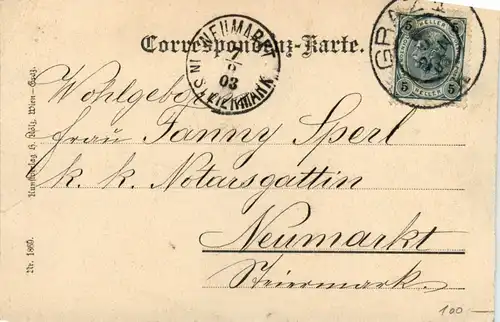 Correspondenz-Karte.
NEUMARKT
IN STEIERMARK
03
GRAZ 1
5 HELLER 5
Wohlgeboren
Frau Fanny Sperl
k. k. Notarsgattin
Neumarkt
Steiermark.
Kunstverlag H.
Wien-Graz.
Nr. 1869.
100